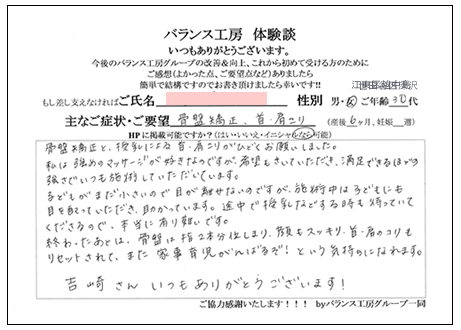 バランス工房 体験談
いつもありがとうございます。
今後のバランス工房グループの改善&向上、これから初めて受ける方のために
ご感想(よかった点、ご要望点など)ありましたら
簡単で結構ですのでお書き頂けましたら幸いです!!
もし差し支えなければご氏名 性別 男・女 ご年齢30代
主なご症状・ご要望 骨盤矯正、首・肩こり (産後6ヶ月、妊娠 週)
HPに掲載可能ですか?(はい・いいえ・イニシャルなら可能)
骨盤矯正と、授乳による首・肩こりがひどくてお願いしました。
私は強めのマッサージが好きなのですが、希望もきいていただき、満足できるほどの
強さでいつも施術していただいています。
子どもがまだ小さいので目が離せないのですが、施術中は子どもにも
目を配っていただき、助かっています。途中で授乳などする時も待っていて
くださるので、本当に有り難いです。
終わったあとは、骨盤は指2本分位しまり、顔もスッキリ、首・肩のコリも
リセットされて、また家事育児がんばるぞ!という気持ちになれます。
吉崎さん いつもありがとうございます!
ご協力感謝いたします!!! byバランス工房グループ一同